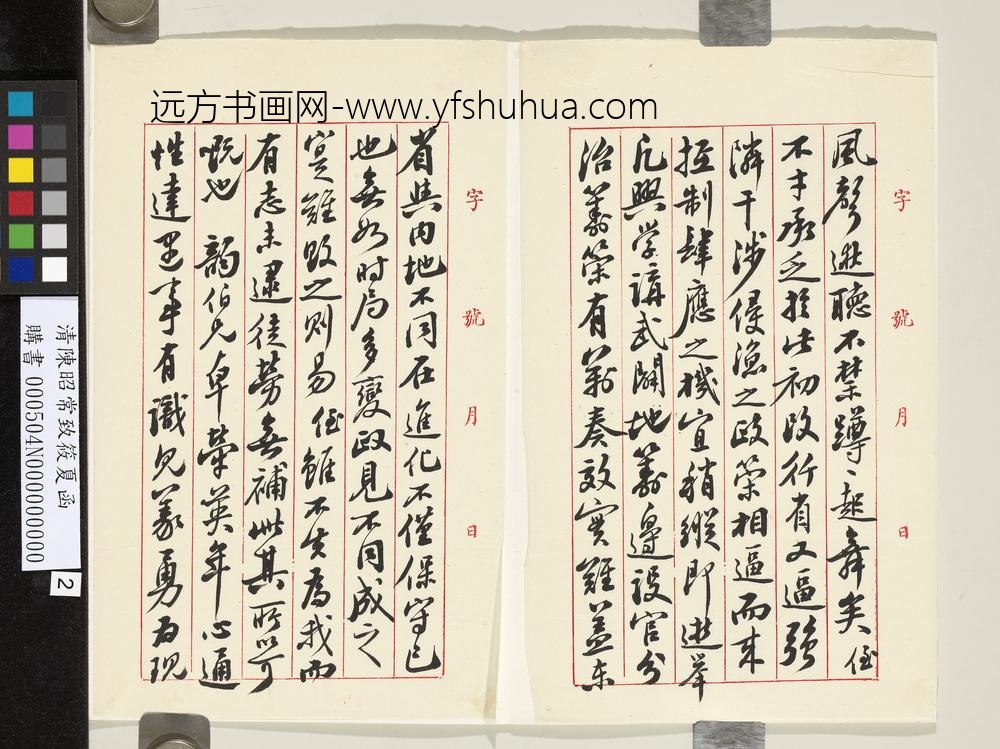 远方书画网-www.yfshuhua.com
字 號 月 日
風聲逖聽不禁蹲蹲起舞矣侄
不才承乏於此初改行省又逼強
隣干涉侵漁之政策相逼而來
控制肆應之機宜稍縱即逝舉
凡興学講武闢地籌邊設官分
治籌策有萬奏效实難蓋东
字 號 月 日
省與内地不同在進化不僅保守已
也無如时局多變政見不同成之
实難敗之则易侄雖不失為我而
有志未逮徒勞無補此其所以可
慨也 韵伯兄卓犖英年心通
性達遇事有識見義勇为現
清陳昭常致筱夏函
購書 000504N000000000
2